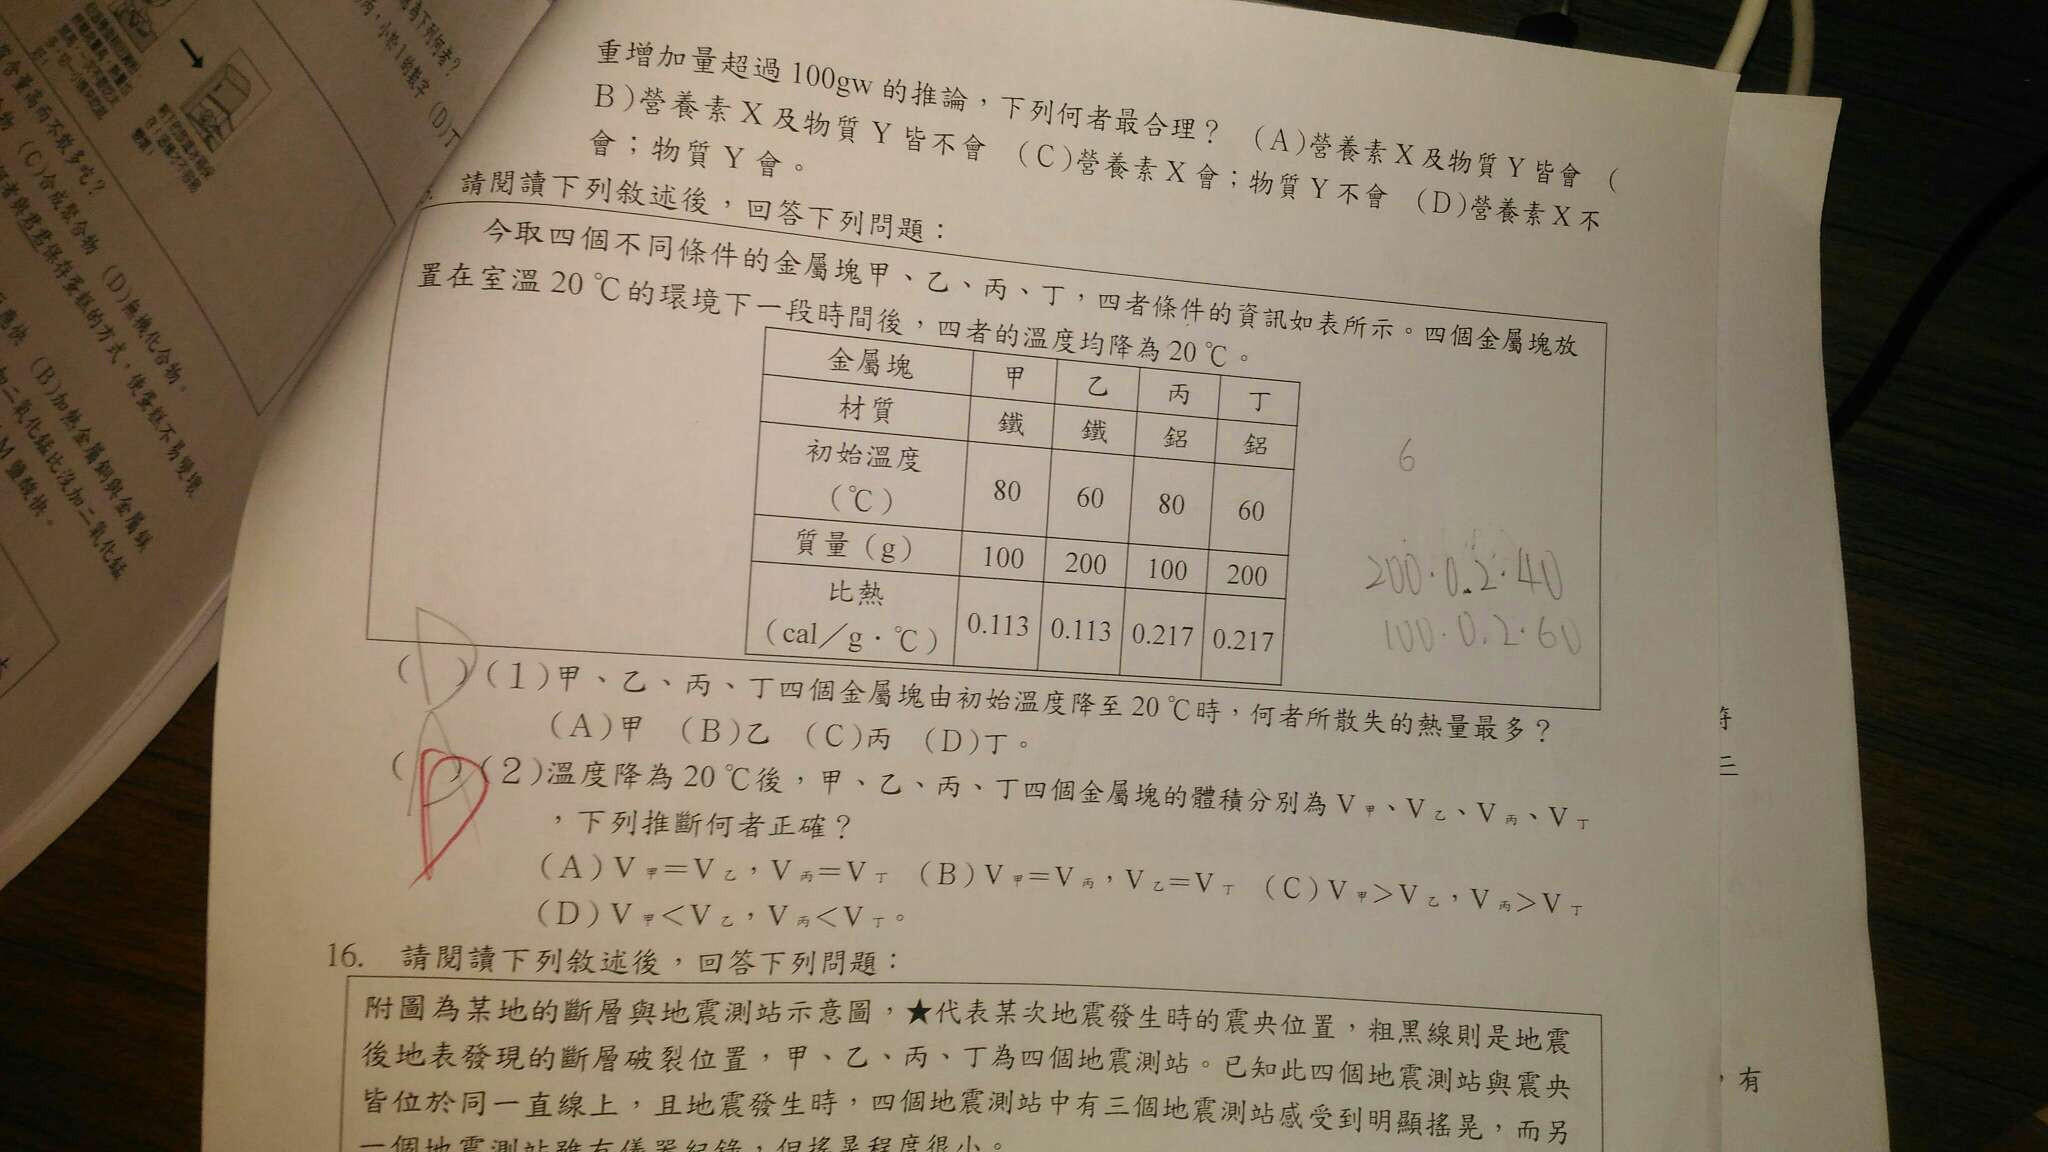 為下列何者？
，小於1的數字 (D)丁
含量高而不敢多吃？
物 (C)合成聚合物 (D)無機化合物。
何者與君君保存蛋糕的方式，使蛋糕不易變壞
應快 (B)加熱金屬銅與金屬鎂
加二氧化錳比沒加二氧化錳
M鹽酸快。
重增加量超過100gw的推論，下列何者最合理？ (A)營養素X及物質Y皆會 (
B)營養素X及物質Y皆不會 (C)營養素X會；物質Y不會 (D)營養素X不
會；物質Y會。
請閱讀下列敘述後，回答下列問題：
今取四個不同條件的金屬塊甲、乙、丙、丁，四者條件的資訊如表所示。四個金屬塊放
置在室溫20℃的環境下一段時間後，四者的溫度均降為20℃。
金屬塊 甲 乙 丙 丁
材質 鐵 鐵 鋁 鋁
初始溫度
(℃) 80 60 80 60
質量(g) 100 200 100 200
比熱
(cal／g·℃) 0.113 0.113 0.217 0.217
6
200·0.2·40
100·0.2·60
(D)(1)甲、乙、丙、丁四個金屬塊由初始溫度降至20℃時，何者所散失的熱量最多？
(A)甲 (B)乙 (C)丙 (D)丁。
(A)(2)溫度降為20℃後，甲、乙、丙、丁四個金屬塊的體積分別為V甲、V乙、V丙、V丁
D
，下列推斷何者正確？
(A)V甲＝V乙，V丙＝V丁 (B)V甲＝V丙，V乙＝V丁 (C)V甲＞V乙，V丙＞V丁
(D)V甲＜V乙，V丙＜V丁。
16. 請閱讀下列敘述後，回答下列問題：
附圖為某地的斷層與地震測站示意圖，★代表某次地震發生時的震央位置，粗黑線則是地震
後地表發現的斷層破裂位置，甲、乙、丙、丁為四個地震測站。已知此四個地震測站與震央
皆位於同一直線上，且地震發生時，四個地震測站中有三個地震測站感受到明顯搖晃，而另
一個地震測站雖有儀器紀錄，但搖晃程度很小。
符
二
，有